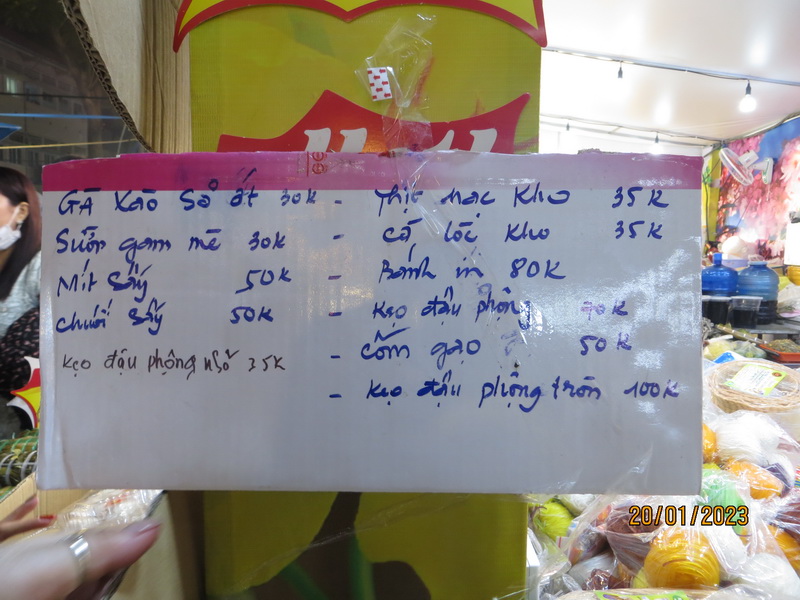 GÀ XÀO SẢ ớt 30K
Sườn gam mè 30K
Mít Sấy 50K
Chuối Sấy 50K
Kẹo đậu phộng nhỏ 35K
- Thịt nạc Kho 35K
- Cá lóc Kho 35K
- Bánh in 80K
- Kẹo đậu phộng 70K
- Cốm gạo 50K
- Kẹo đậu phộng tròn 100K
20/01/2023